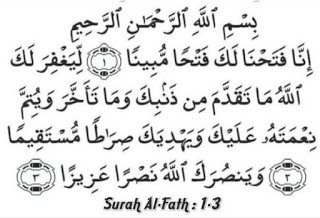 بِسْمِ اللَّهِ الرَّحْمَٰنِ الرَّحِيمِ
إِنَّا فَتَحْنَا لَكَ فَتْحًا مُّبِينًا ﴿١﴾ لِّيَغْفِرَ لَكَ
اللَّهُ مَا تَقَدَّمَ مِن ذَنۢبِكَ وَمَا تَأَخَّرَ وَيُتِمَّ
نِعْمَتَهُ عَلَيْكَ وَيَهْدِيَكَ صِرَاطًا مُّسْتَقِيمًا
﴿٢﴾ وَيَنصُرَكَ اللَّهُ نَصْرًا عَزِيزًا ﴿٣﴾
Surah Al-Fath : 1-3